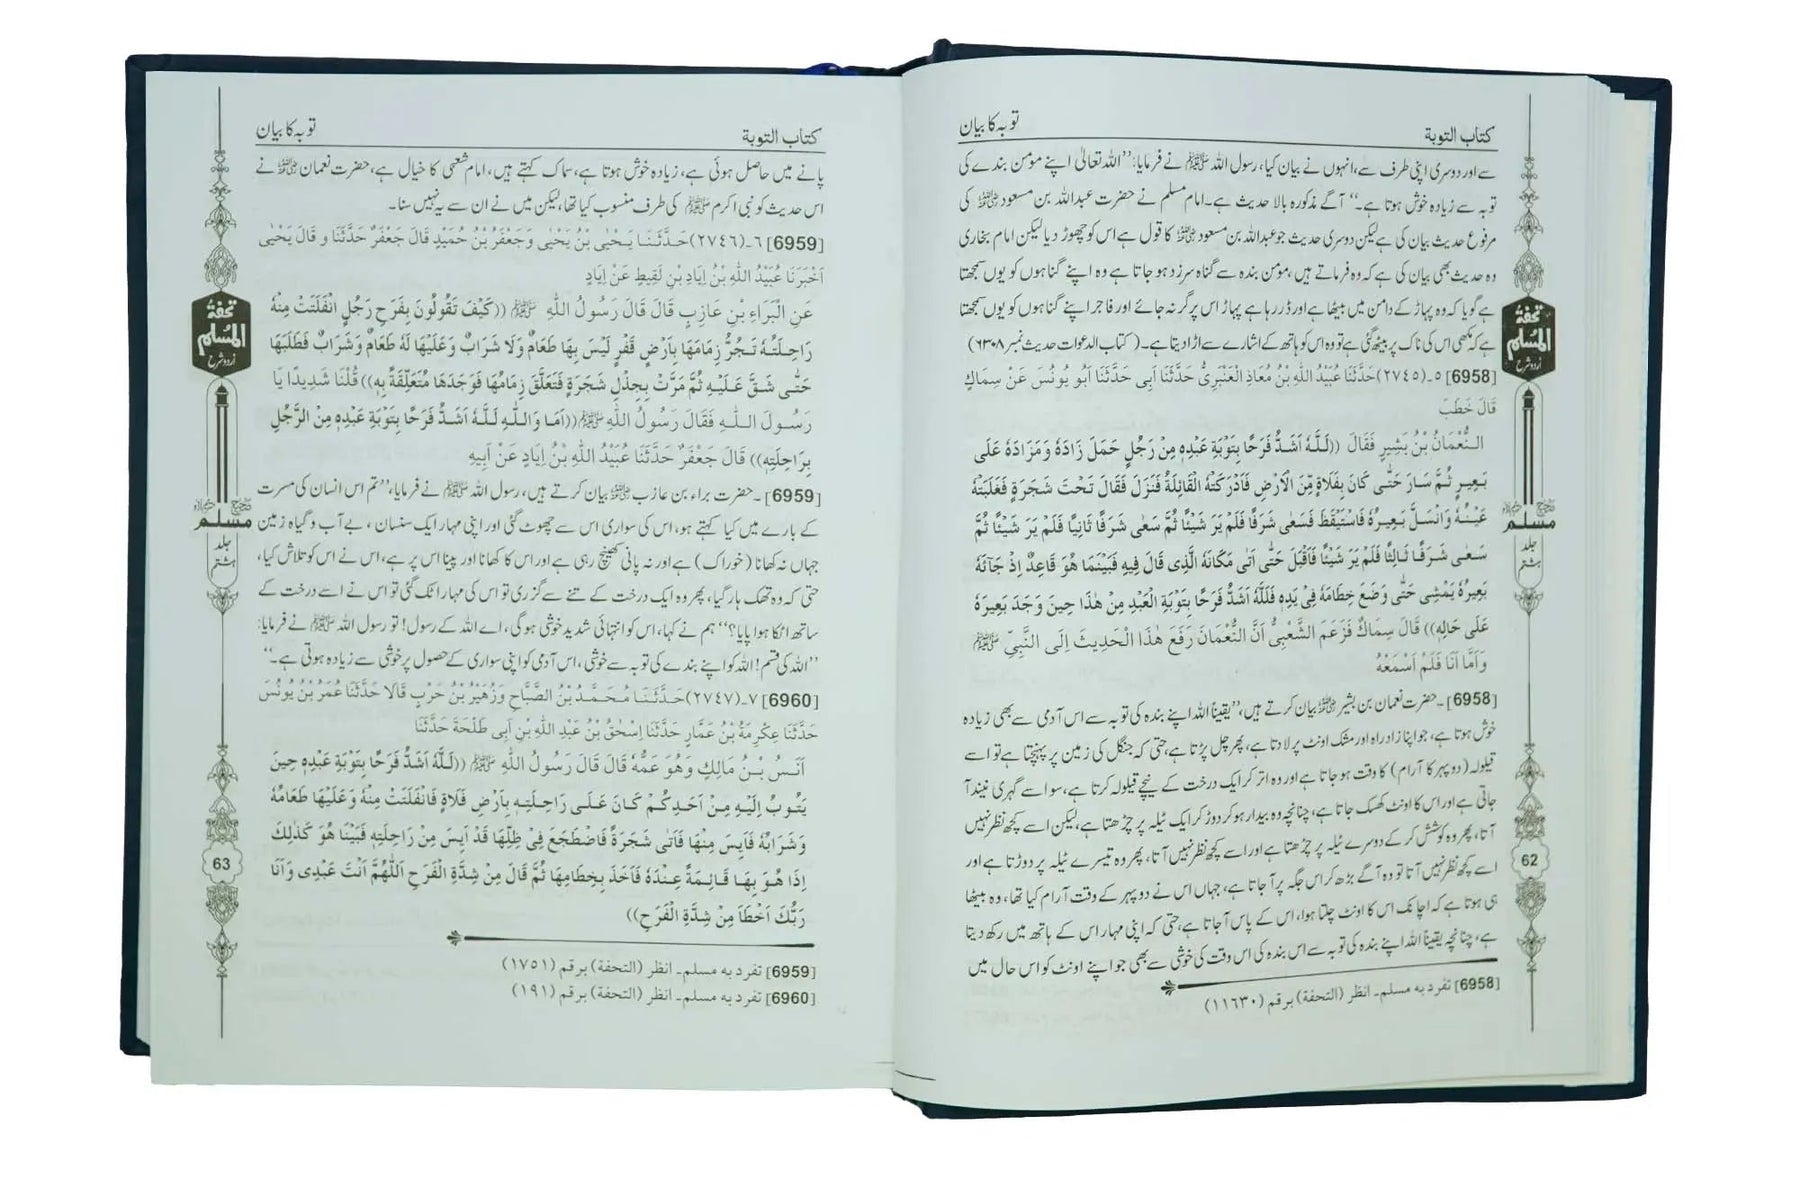 كتاب التوبة
توبہ کا بیان
سے اور دوسری اپنی طرف سے، انہوں نے بیان کیا، رسول اللہ ﷺ نے فرمایا: ’’اللہ تعالیٰ اپنے مومن بندے کی
توبہ سے زیادہ خوش ہوتا ہے۔‘‘ آگے مذکورہ بالا حدیث ہے۔ امام مسلم نے حضرت عبداللہ بن مسعود رضی اللہ عنہ کی
مرفوع حدیث بیان کی ہے لیکن دوسری حدیث جو عبداللہ بن مسعود رضی اللہ عنہ کا قول ہے اس کو چھوڑ دیا لیکن امام بخاری
وہ حدیث بھی بیان کی ہے کہ وہ فرماتے ہیں، مومن بندہ سے گناہ سرزد ہو جاتا ہے وہ اپنے گناہوں کو یوں سمجھتا
ہے گویا کہ وہ پہاڑ کے دامن میں بیٹھا ہے اور ڈر رہا ہے پہاڑ اس پر گر نہ جائے اور فاجر اپنے گناہوں کو یوں سمجھتا
ہے کہ مکھی اس کی ناک پر بیٹھ گئی ہے تو وہ اس کو ہاتھ کے اشارے سے اڑا دیتا ہے۔ (کتاب الدعوات حدیث نمبر ۶۳۰۸)
[6958] ۵۔(۲۷۴۵) حَدَّثَنَا عُبَيْدُ اللّٰهِ بْنُ مُعَاذٍ الْعَنْبَرِيُّ حَدَّثَنَا اَبِى حَدَّثَنَا اَبُو يُونُسَ عَنْ سِمَاكٍ
قَالَ خَطَبَ
النُّعْمَانُ بْنُ بَشِيرٍ فَقَالَ ((لَلّٰهُ اَشَدُّ فَرَحًا بِتَوْبَةِ عَبْدِهٖ مِنْ رَجُلٍ حَمَلَ زَادَهٗ وَمَزَادَهٗ عَلَى
بَعِيرٍ ثُمَّ سَارَ حَتّٰى كَانَ بِفَلَاةٍ مِّنَ الْاَرْضِ فَاَدْرَكَتْهُ الْقَائِلَةُ فَنَزَلَ فَقَالَ تَحْتَ شَجَرَةٍ فَغَلَبَتْهُ
عَيْنُهٗ وَانْسَلَّ بَعِيرُهٗ فَاسْتَيْقَظَ فَسَعٰى شَرَفًا فَلَمْ يَرَ شَيْئًا ثُمَّ سَعٰى شَرَفًا ثَانِيًا فَلَمْ يَرَ شَيْئًا ثُمَّ
سَعٰى شَرَفًا ثَالِثًا فَلَمْ يَرَ شَيْئًا فَاَقْبَلَ حَتّٰى اَتٰى مَكَانَهُ الَّذِى قَالَ فِيهِ فَبَيْنَمَا هُوَ قَاعِدٌ اِذْ جَآئَهٗ
بَعِيرُهٗ يَمْشِى حَتّٰى وَضَعَ خِطَامَهٗ فِىْ يَدِهٖ فَلَلّٰهُ اَشَدُّ فَرَحًا بِتَوْبَةِ الْعَبْدِ مِنْ هٰذَا حِينَ وَجَدَ بَعِيرَهٗ
عَلٰى حَالِهٖ)) قَالَ سِمَاكٌ فَزَعَمَ الشَّعْبِىُّ اَنَّ النُّعْمَانَ رَفَعَ هٰذَا الْحَدِيثَ اِلَى النَّبِىِّ ﷺ
وَاَمَّا اَنَا فَلَمْ اَسْمَعْهُ
[6958]۔ حضرت نعمان بن بشیر رضی اللہ عنہ بیان کرتے ہیں، ’’یقیناً اللہ اپنے بندہ کی توبہ سے اس آدمی سے بھی زیادہ
خوش ہوتا ہے، جو اپنا زادراہ اور مشک اونٹ پر لادتا ہے، پھر چل پڑتا ہے، حتی کہ جنگل کی زمین پر پہنچتا ہے تو اسے
قیلولہ (دوپہر کا آرام) کا وقت ہو جاتا ہے اور وہ اتر کر ایک درخت کے نیچے قیلولہ کرتا ہے، سو اسے گہری نیند آ
جاتی ہے اور اس کا اونٹ کھسک جاتا ہے، چنانچہ وہ بیدار ہو کر دوڑ کر ایک ٹیلہ پر چڑھتا ہے، لیکن اسے کچھ نظر نہیں
آتا، پھر وہ کوشش کر کے دوسرے ٹیلہ پر چڑھتا ہے اور اسے کچھ نظر نہیں آتا، پھر وہ تیسرے ٹیلہ پر دوڑتا ہے اور
اسے کچھ نظر نہیں آتا تو وہ آگے بڑھ کر اس جگہ پر آ جاتا ہے، جہاں اس نے دوپہر کے وقت آرام کیا تھا، وہ بیٹھا
ہی ہوتا ہے کہ اچانک اس کا اونٹ چلتا ہوا، اس کے پاس آ جاتا ہے، حتی کہ اپنی مہار اس کے ہاتھ میں رکھ دیتا
ہے، چنانچہ یقیناً اللہ اپنے بندہ کی توبہ سے اس بندہ کی اس وقت کی خوشی سے بھی جو اپنے اونٹ کو اس حال میں
[6958] تفرد به مسلم۔ انظر (التحفة) برقم (۱۱۶۳۰)
تحفۃ
المسلم
اُردو شرح
صحیح
مسلم
جلد
ہشتم
62
كتاب التوبة
توبہ کا بیان
پانے میں حاصل ہوئی ہے، زیادہ خوش ہوتا ہے، سماک کہتے ہیں، امام شعبی کا خیال ہے، حضرت نعمان رضی اللہ عنہ نے
اس حدیث کو نبی اکرم ﷺ کی طرف منسوب کیا تھا، لیکن میں نے ان سے یہ نہیں سنا۔
[6959] ۶۔(۲۷۴۶) حَدَّثَنَا يَحْيٰى بْنُ يَحْيٰى وَجَعْفَرُ بْنُ حُمَيْدٍ قَالَ جَعْفَرٌ حَدَّثَنَا و قَالَ يَحْيٰى
اَخْبَرَنَا عُبَيْدُ اللّٰهِ بْنُ اِيَادِ بْنِ لَقِيطٍ عَنْ اِيَادٍ
عَنِ الْبَرَاءِ بْنِ عَازِبٍ قَالَ قَالَ رَسُولُ اللّٰهِ ﷺ ((كَيْفَ تَقُولُونَ بِفَرَحِ رَجُلٍ انْفَلَتَتْ مِنْهُ
رَاحِلَتُهٗ تَجُرُّ زِمَامَهَا بِاَرْضٍ قَفْرٍ لَيْسَ بِهَا طَعَامٌ وَلَا شَرَابٌ وَعَلَيْهَا لَهٗ طَعَامٌ وَشَرَابٌ فَطَلَبَهَا
حَتّٰى شَقَّ عَلَيْهِ ثُمَّ مَرَّتْ بِجِذْلِ شَجَرَةٍ فَتَعَلَّقَ زِمَامُهَا فَوَجَدَهَا مُتَعَلِّقَةً بِهٖ)) قُلْنَا شَدِيدًا يَا
رَسُولَ اللّٰهِ فَقَالَ رَسُولُ اللّٰهِ ﷺ ((اَمَا وَاللّٰهِ لَلّٰهُ اَشَدُّ فَرَحًا بِتَوْبَةِ عَبْدِهٖ مِنَ الرَّجُلِ
بِرَاحِلَتِهٖ)) قَالَ جَعْفَرٌ حَدَّثَنَا عُبَيْدُ اللّٰهِ بْنُ اِيَادٍ عَنْ اَبِيهِ
[6959]۔ حضرت براء بن عازب رضی اللہ عنہ بیان کرتے ہیں، رسول اللہ ﷺ نے فرمایا، ’’تم اس انسان کی مسرت
کے بارے میں کیا کہتے ہو، اس کی سواری اس سے چھوٹ گئی اور اپنی مہار ایک سنسان، بے آب و گیاہ زمین
جہاں نہ کھانا (خوراک) ہے اور نہ پانی کھینچ رہی ہے اور اس کا کھانا اور پینا اس پر ہے، اس نے اس کو تلاش کیا،
حتی کہ وہ تھک ہار گیا، پھر وہ ایک درخت کے تنے سے گزری تو اس کی مہار اٹک گئی تو اس نے اسے درخت کے
ساتھ اٹکا ہوا پایا؟‘‘ ہم نے کہا، اس کو انتہائی شدید خوشی ہو گی، اے اللہ کے رسول! تو رسول اللہ ﷺ نے فرمایا:
’’اللہ کی قسم! اللہ کو اپنے بندے کی توبہ سے خوشی، اس آدمی کو اپنی سواری کے حصول پر خوشی سے زیادہ ہوتی ہے۔‘‘
[6960] ۷۔(۲۷۴۷) حَدَّثَنَا مُحَمَّدُ بْنُ الصَّبَّاحِ وَزُهَيْرُ بْنُ حَرْبٍ قَالَا حَدَّثَنَا عُمَرُ بْنُ يُونُسَ
حَدَّثَنَا عِكْرِمَةُ بْنُ عَمَّارٍ حَدَّثَنَا اِسْحٰقُ بْنُ عَبْدِ اللّٰهِ بْنِ اَبِى طَلْحَةَ حَدَّثَنَا
اَنَسُ بْنُ مَالِكٍ وَهُوَ عَمُّهٗ قَالَ قَالَ رَسُولُ اللّٰهِ ﷺ ((لَلّٰهُ اَشَدُّ فَرَحًا بِتَوْبَةِ عَبْدِهٖ حِينَ
يَتُوبُ اِلَيْهِ مِنْ اَحَدِكُمْ كَانَ عَلٰى رَاحِلَتِهٖ بِاَرْضِ فَلَاةٍ فَانْفَلَتَتْ مِنْهُ وَعَلَيْهَا طَعَامُهٗ
وَشَرَابُهٗ فَاَيِسَ مِنْهَا فَاَتٰى شَجَرَةً فَاضْطَجَعَ فِىْ ظِلِّهَا قَدْ اَيِسَ مِنْ رَاحِلَتِهٖ فَبَيْنَا هُوَ كَذٰلِكَ
اِذَا هُوَ بِهَا قَائِمَةً عِنْدَهٗ فَاَخَذَ بِخِطَامِهَا ثُمَّ قَالَ مِنْ شِدَّةِ الْفَرَحِ اَللّٰهُمَّ اَنْتَ عَبْدِى وَاَنَا
رَبُّكَ اَخْطَاَ مِنْ شِدَّةِ الْفَرَحِ))
[6959] تفرد به مسلم۔ انظر (التحفة) برقم (۱۷۵۱)
[6960] تفرد به مسلم۔ انظر (التحفة) برقم (۱۹۱)
تحفۃ
المسلم
اُردو شرح
صحیح
مسلم
جلد
ہشتم
63